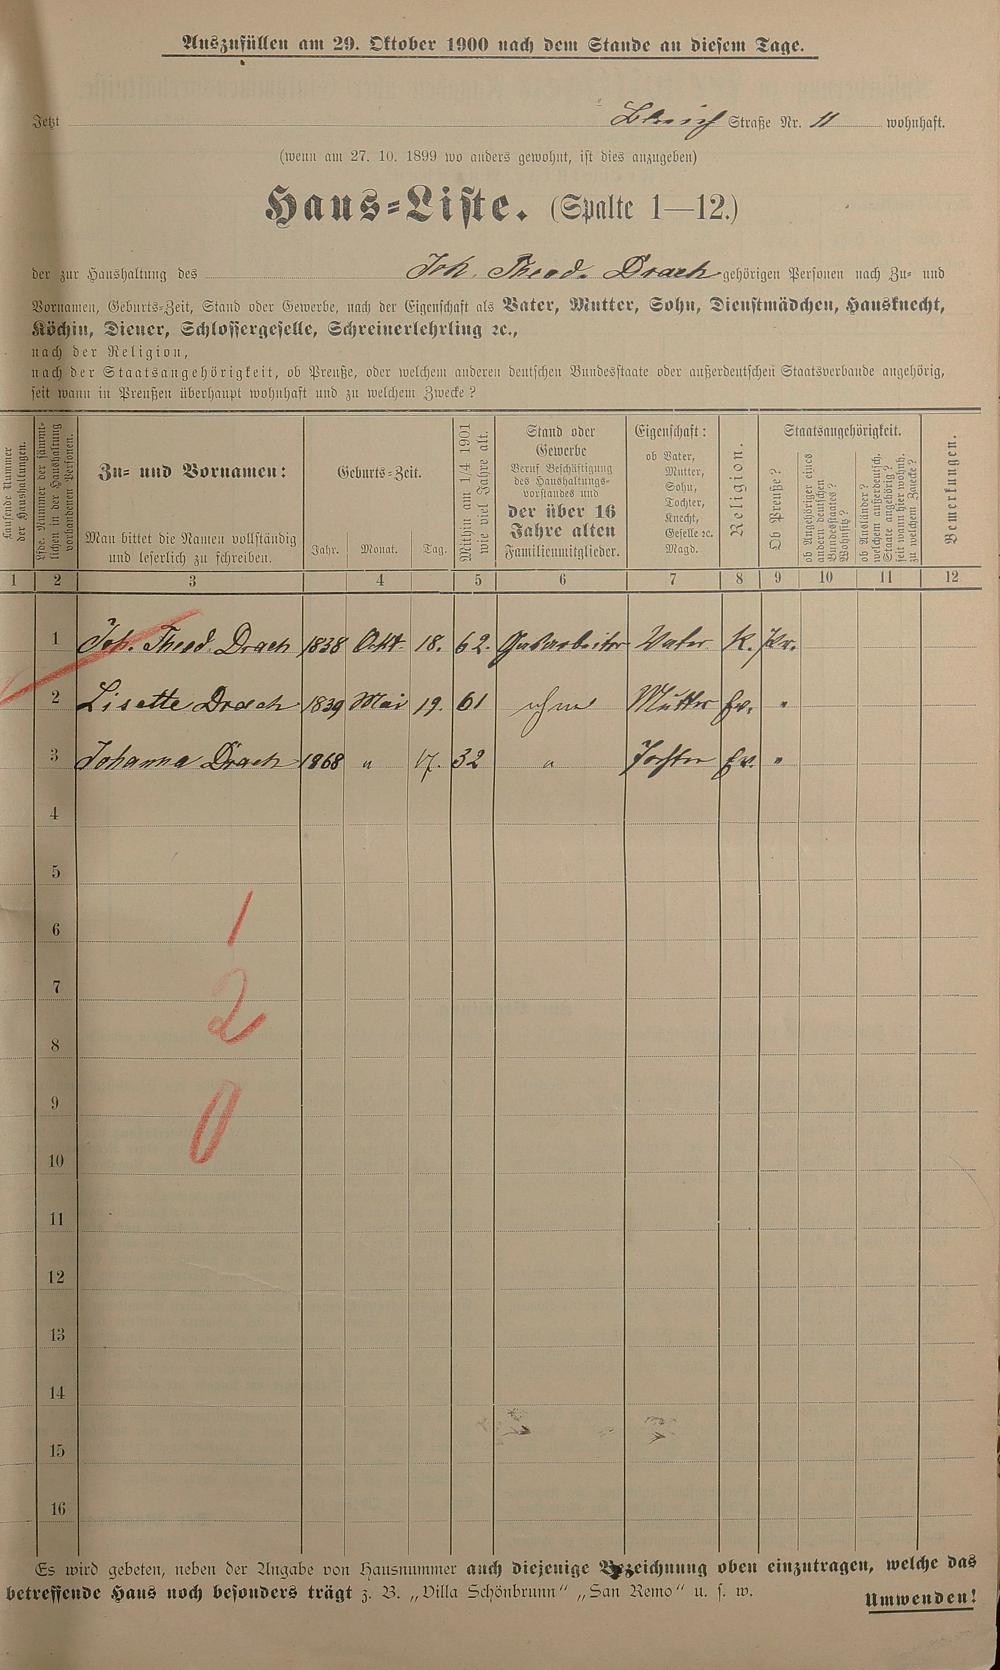 Auszufüllen am 29. Oktober 1900 nach dem Stande an diesem Tage.
Jetzt Bleich Straße Nr. 11 wohnhaft.
(wenn am 27. 10. 1899 wo anders gewohnt, ist dies anzugeben)
Haus-Liste. (Spalte 1—12.)
der zur Haushaltung des Joh. Theod. Drach gehörigen Personen nach Zu- und
Vornamen, Geburts-Zeit, Stand oder Gewerbe, nach der Eigenschaft als Vater, Mutter, Sohn, Dienstmädchen, Hausknecht,
Köchin, Diener, Schlossergeselle, Schreinerlehrling ꝛc.,
nach der Religion,
nach der Staatsangehörigkeit, ob Preuße, oder welchem anderen deutschen Bundesstaate oder außerdeutschen Staatsverbande angehörig,
seit wann in Preußen überhaupt wohnhaft und zu welchem Zwecke?
Laufende Nummer
der Haushaltungen.
Lfde. Nummer der sämmt-
lichen in der Haushaltung
vorhandenen Personen.
Zu- und Vornamen:
Man bittet die Namen vollständig
und leserlich zu schreiben.
Geburts-Zeit.
Jahr. Monat. Tag.
Mithin am 1/4 1901
wie viel Jahre alt.
Stand oder
Gewerbe
Beruf Beschäftigung
des Haushaltungs-
vorstandes und
der über 16
Jahre alten
Familienmitglieder.
Eigenschaft:
ob Vater,
Mutter,
Sohn,
Tochter,
Knecht,
Geselle ꝛc.
Magd.
Religion.
Staatsangehörigkeit.
Ob Preuße?
ob Angehöriger eines
andern deutschen
Bundesstaates?
Wohnsitz?
ob Ausländer?
welchem außerdeutsch.
Staate angehörig?
seit wann hier wohnh.
zu welchem Zwecke?
Bemerkungen.
1 2 3 4 5 6 7 8 9 10 11 12
1 Joh. Theod. Drach 1838 Okt. 18. 62. Vater K. Pr.
2 Lisette Drach 1839 Mai 19. 61 ohne Mutter Ev. "
3 Johanna Drach 1868 " 17. 32 " Tochter Ev. "
4
5
6
1
7
2
8
9
0
10
11
12
13
14
15
16
Es wird gebeten, neben der Angabe von Hausnummer auch diejenige Bezeichnung oben einzutragen, welche das
betreffende Haus noch besonders trägt z. B. „Villa Schönbrunn“ „San Remo“ u. s. w.
Umwenden!